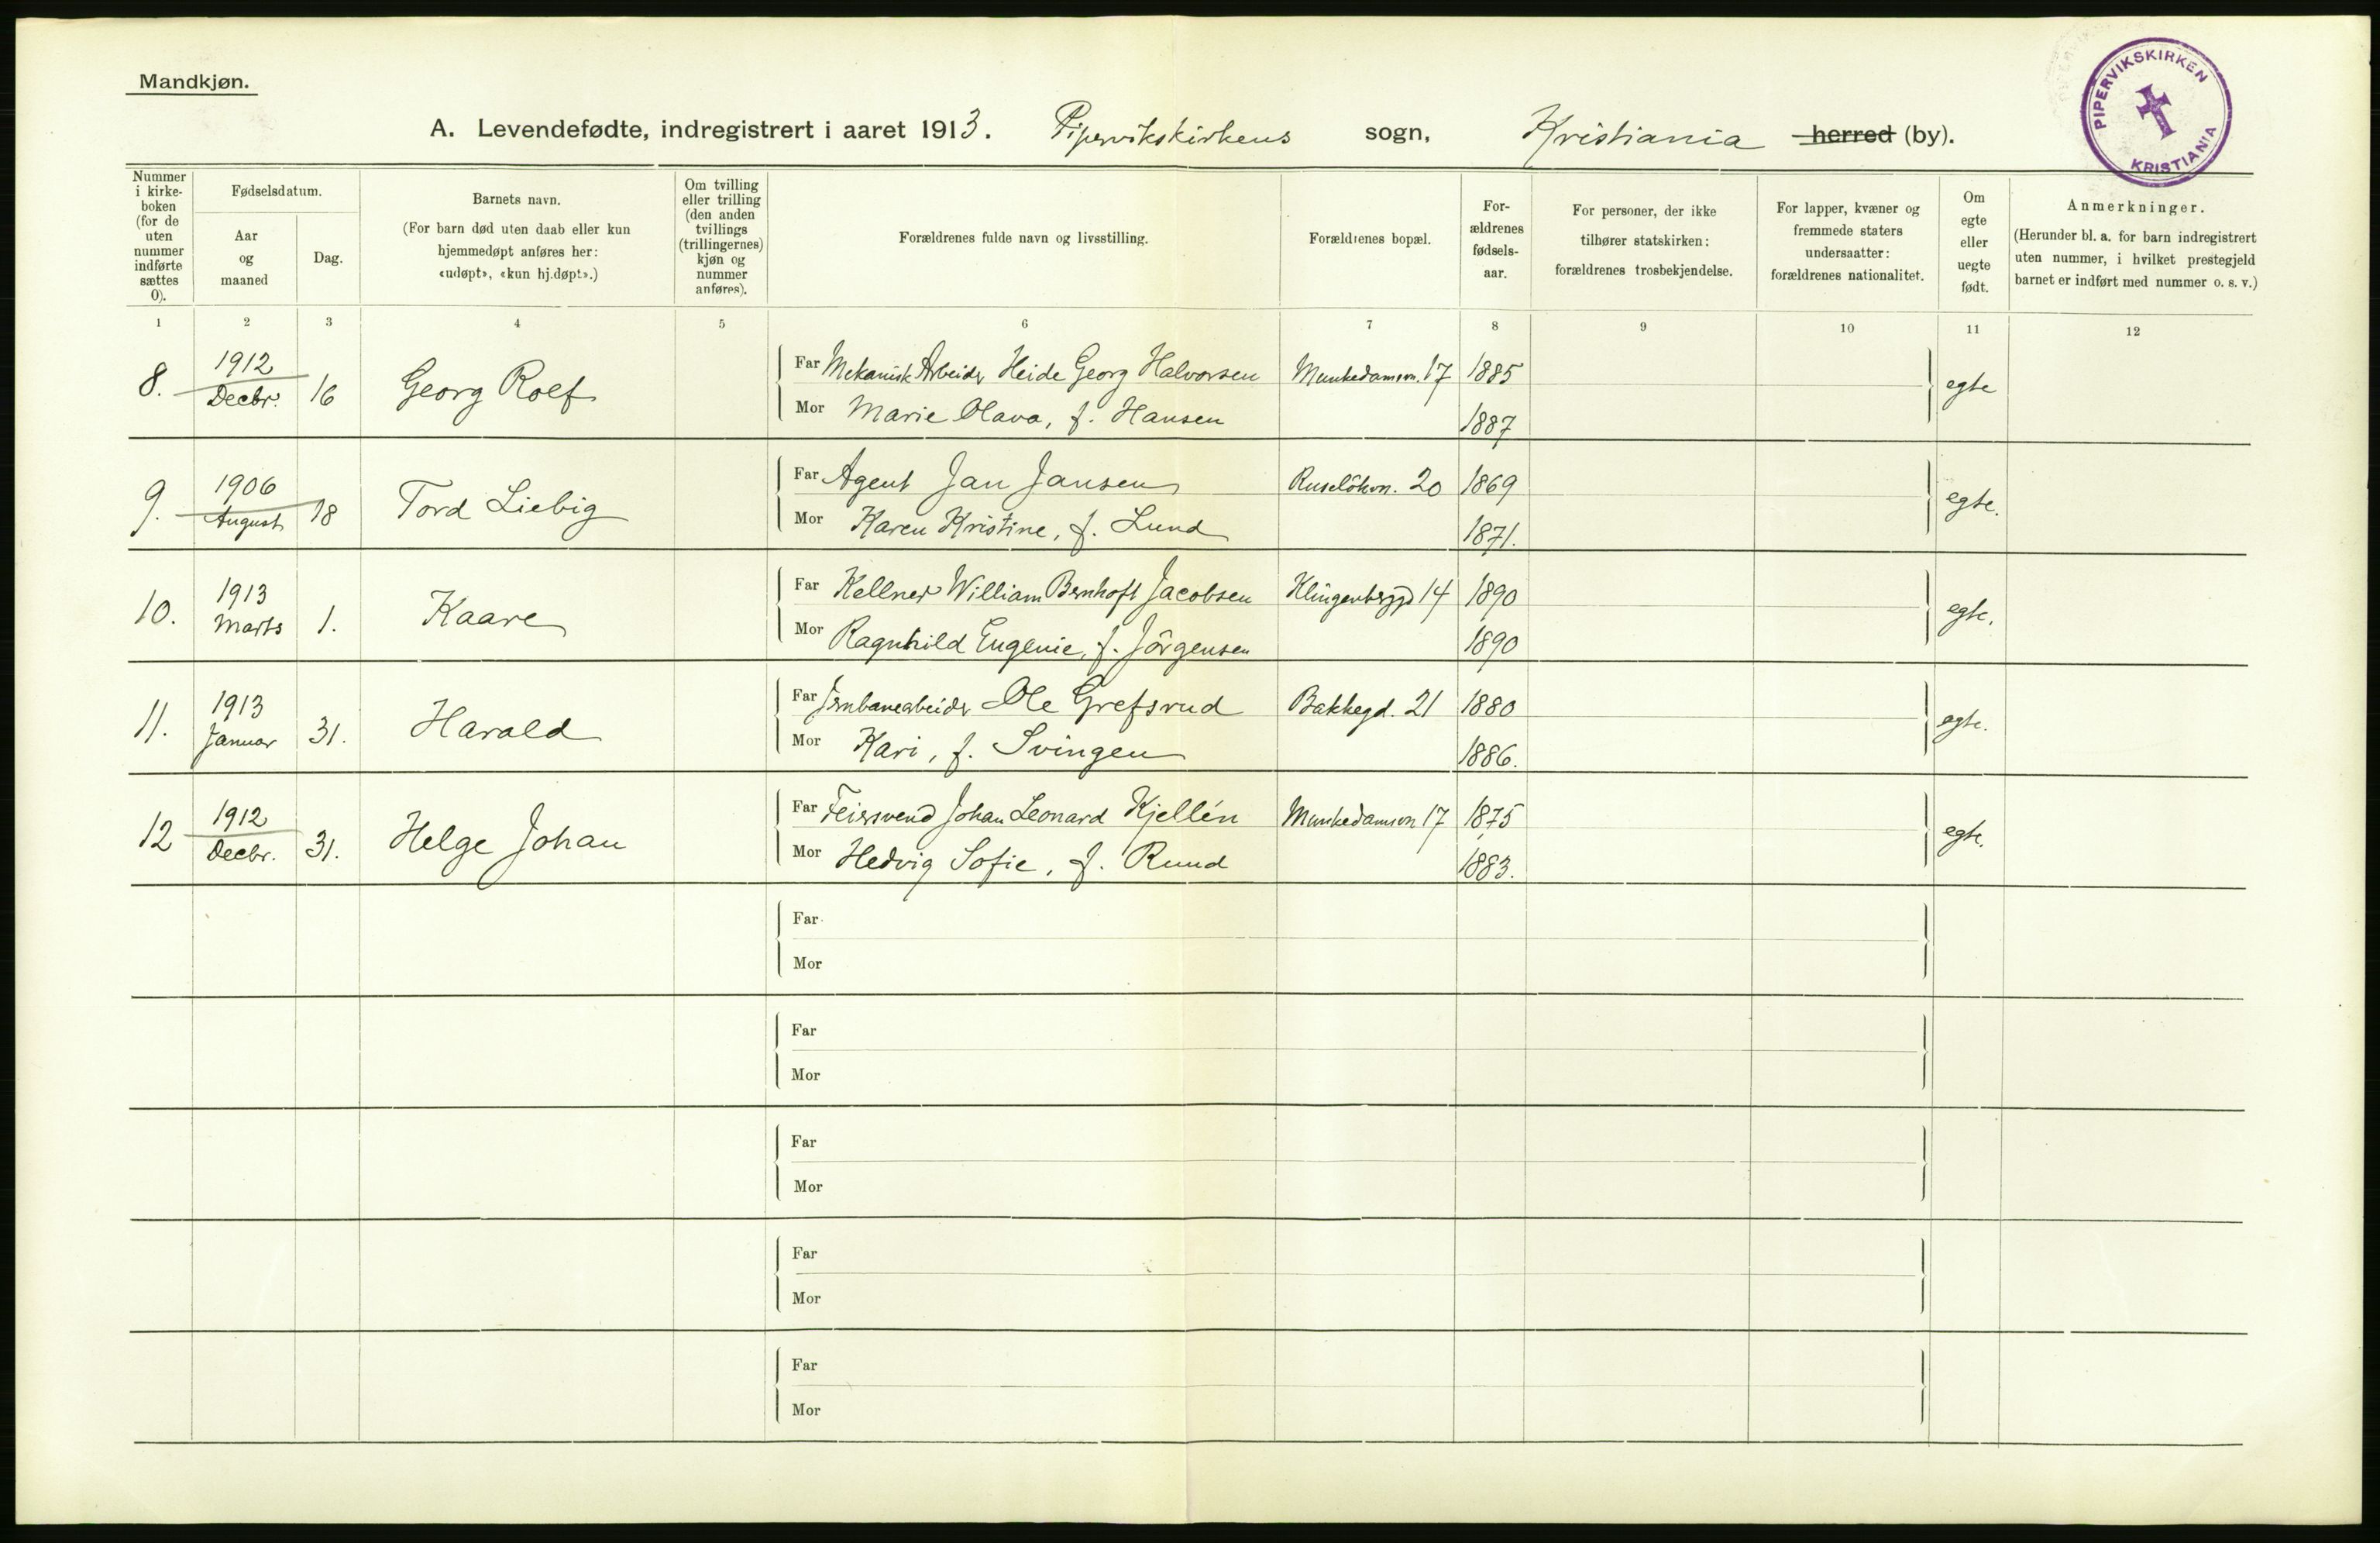 Mandkjøn.
PIPERVIKSKIRKEN
KRISTIANIA
A. Levendefødte, indregistrert i aaret 1913. Pipervikskirkens sogn, Kristiania herred (by).
Nummer i kirke-boken (for de uten nummer indførte sættes 0).
Fødselsdatum.
Aar og maaned
Dag.
Barnets navn.
(For barn død uten daab eller kun hjemmedøpt anføres her: «udøpt», «kun hj.døpt».)
Om tvilling eller trilling (den anden tvillings (trillingernes) kjøn og nummer anføres).
Forældrenes fulde navn og livsstilling.
Forældrenes bopæl.
For-ældrenes fødsels-aar.
For personer, der ikke tilhører statskirken: forældrenes trosbekjendelse.
For lapper, kvæner og fremmede staters undersaatter: forældrenes nationalitet.
Om egte eller uegte født.
Anmerkninger.
(Herunder bl. a. for barn indregistrert uten nummer, i hvilket prestegjeld barnet er indført med nummer o. s. v.)
1 2 3 4 5 6 7 8 9 10 11 12
8. 1912 Decbr. 16 Georg Rolf Far Mekanisk Arbeider Heide Georg Halvorsen Munkedamsvn. 17 1885 egte
Mor Marie Olava, f. Hansen 1887
9. 1906 August 18 Tord Liebig Far Agent Jan Jansen Ruselökvn. 20 1869 egte.
Mor Karen Kristine, f. Lund 1871.
10. 1913 Marts 1. Kaare Far Kellner William Bernhoft Jacobsen Klingenbergd 14 1890 egte.
Mor Ragnhild Eugenie, f. Jörgensen 1890
11. 1913 Januar 31. Harald Far Jernbanearbeider Ole Grefsrud Bakkegd. 21 1880 egte.
Mor Kari, f. Svingen 1886.
12 1912 Decbr. 31. Helge Johan Far Feiersvend Johan Leonard Kjellén Munkedamsvn 17 1875 egte.
Mor Hedvig Sofie, f. Rund 1883.
Far
Mor
Far
Mor
Far
Mor
Far
Mor
Far
Mor